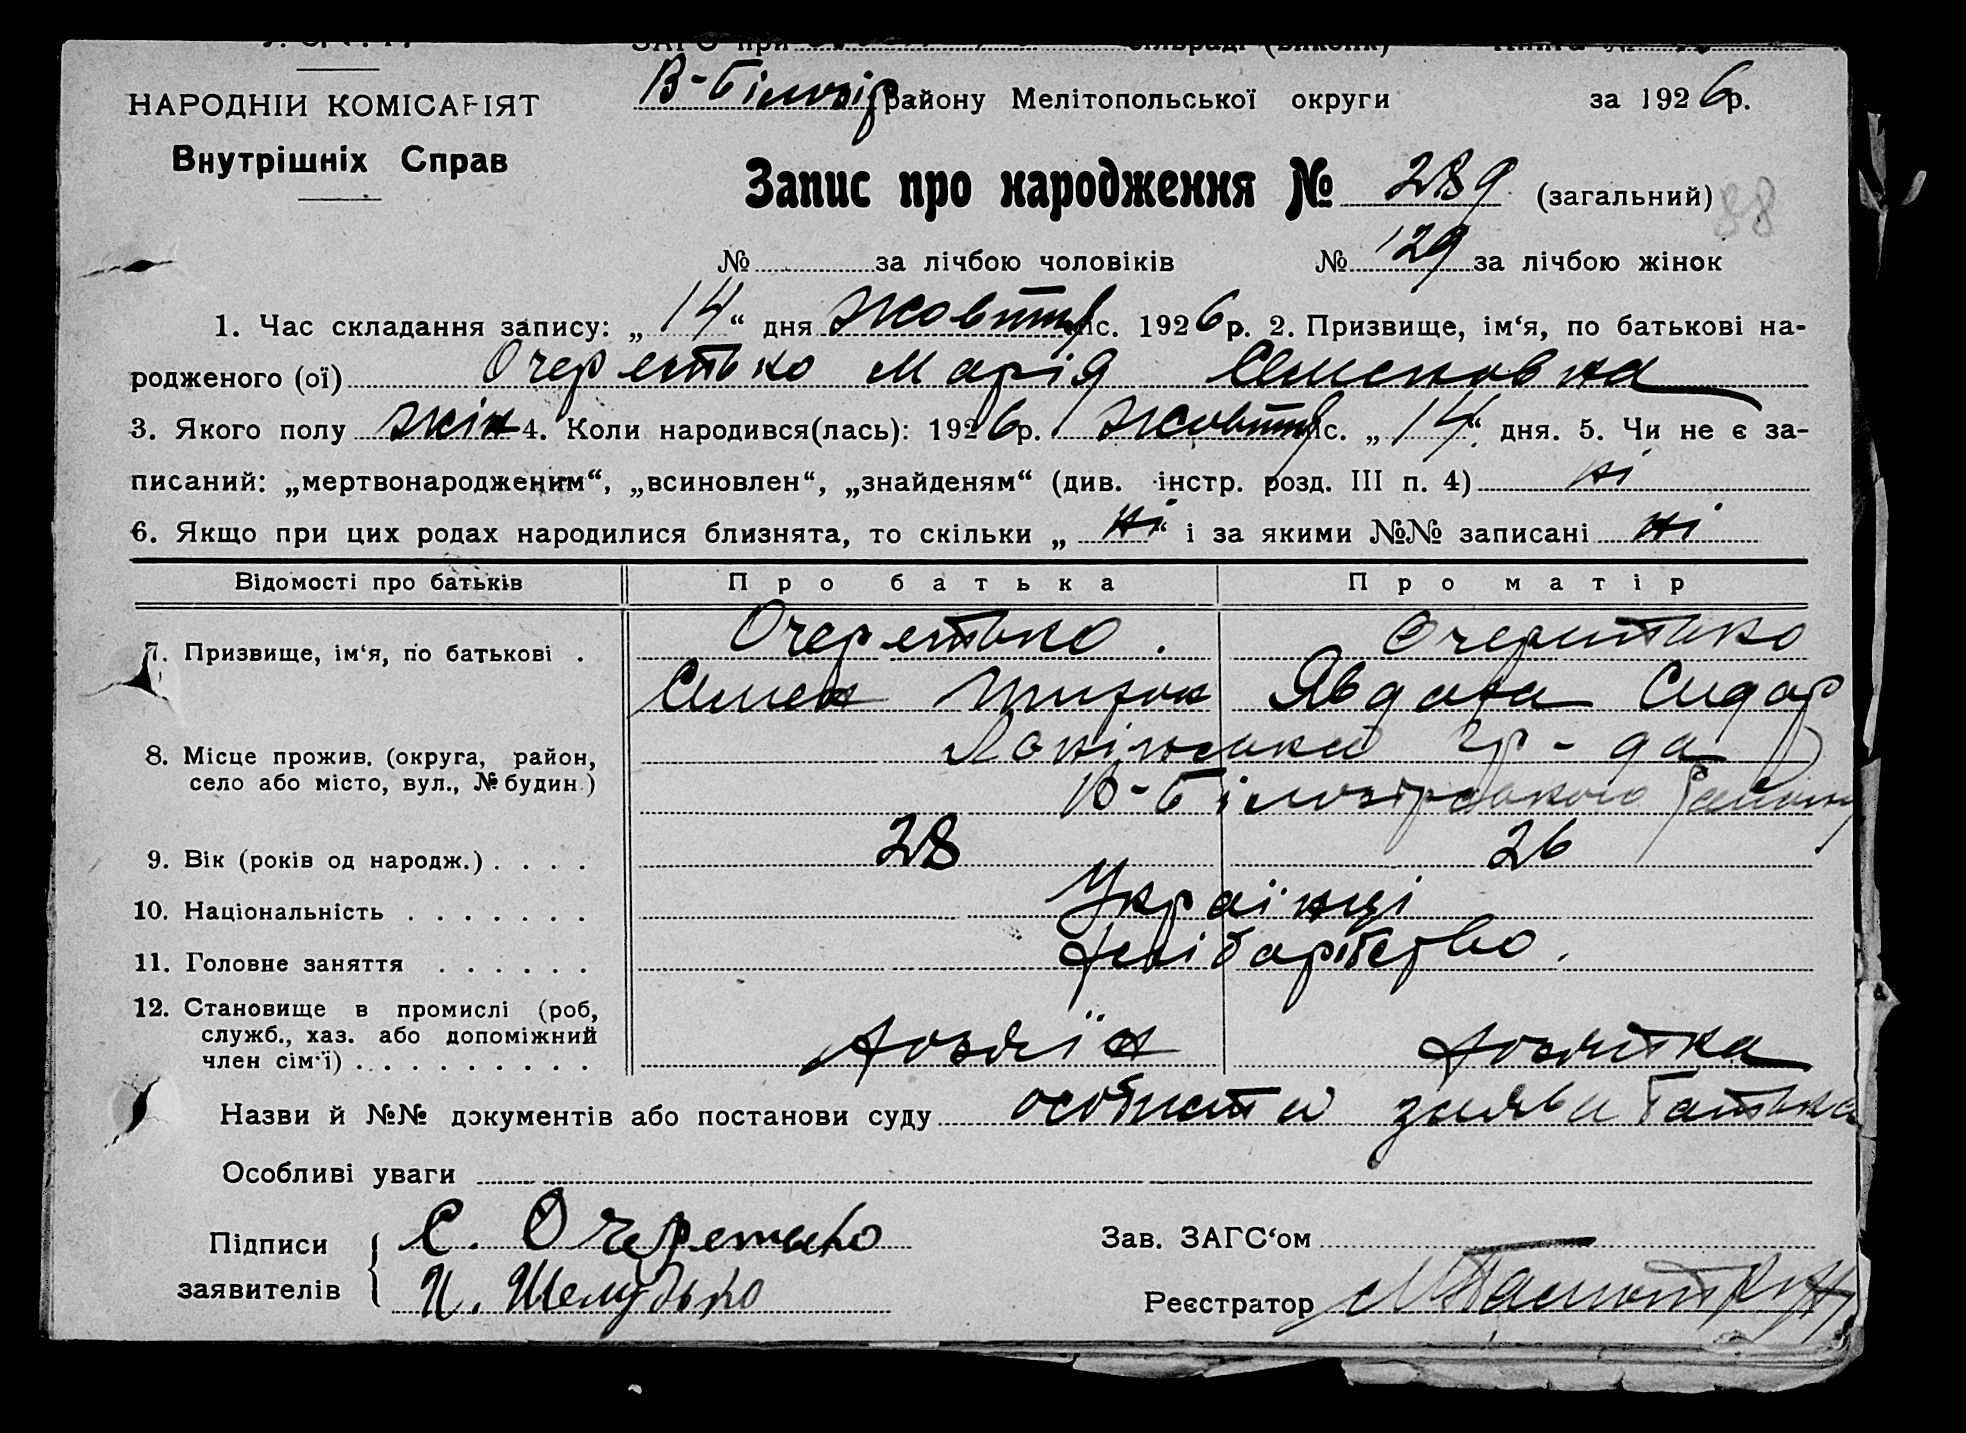 ЗАГС при сільраді (виконк) Книга №
НАРОДНІЙ КОМІСАРІЯТ
Внутрішніх Справ
В-Білозір району Мелітопольської округи за 1926 р.
Запис про народження № 289 (загальний) 88
№ за лічбою чоловіків № 129 за лічбою жінок
1. Час складання запису: „ 14 “ дня жовтня міс. 1926 р. 2. Призвище, ім‘я, по батькові на-
родженого (ої) Очеретько Марія Семеновна
3. Якого полу жін 4. Коли народився(лась): 1926 р. жовтня міс. „ 14 “ дня. 5. Чи не є за-
писаний: „мертвонародженим“, „всиновлен“, „знайденям“ (див. інстр. розд. III п. 4) ні
6. Якщо при цих родах народилися близнята, то скільки „ ні “ і за якими №№ записані ні
Відомості про батьків Про батька Про матір
7. Призвище, ім‘я, по батькові . Очеретько . Очеретько
Семен Тихон Явдоха Сидор
8. Місце прожив. (округа, район,
село або місто, вул., № будин.) гр-да
В-Білозірського району
9. Вік (років од народж.) . . . . 28 26
10. Національність . . . . . . . Українці
11. Головне заняття . . . . . . хліборобство.
12. Становище в промислі (роб,
служб., хаз. або допоміжний
член сім‘ї) . . . . . . . . . . хозяїн хозяйка
Назви й №№ документів або постанови суду особиста заява батька
Особливі уваги
Підписи С. Очеретько Зав. ЗАГС‘ом
заявителів И. Шелудько Реєстратор